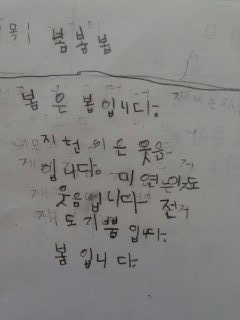 목| 봄봄봄
봄은 봄입니다.
지현이은 웃음
입니다. 미연은
웃음입니다
도 기쁨입니다.
봄입니다